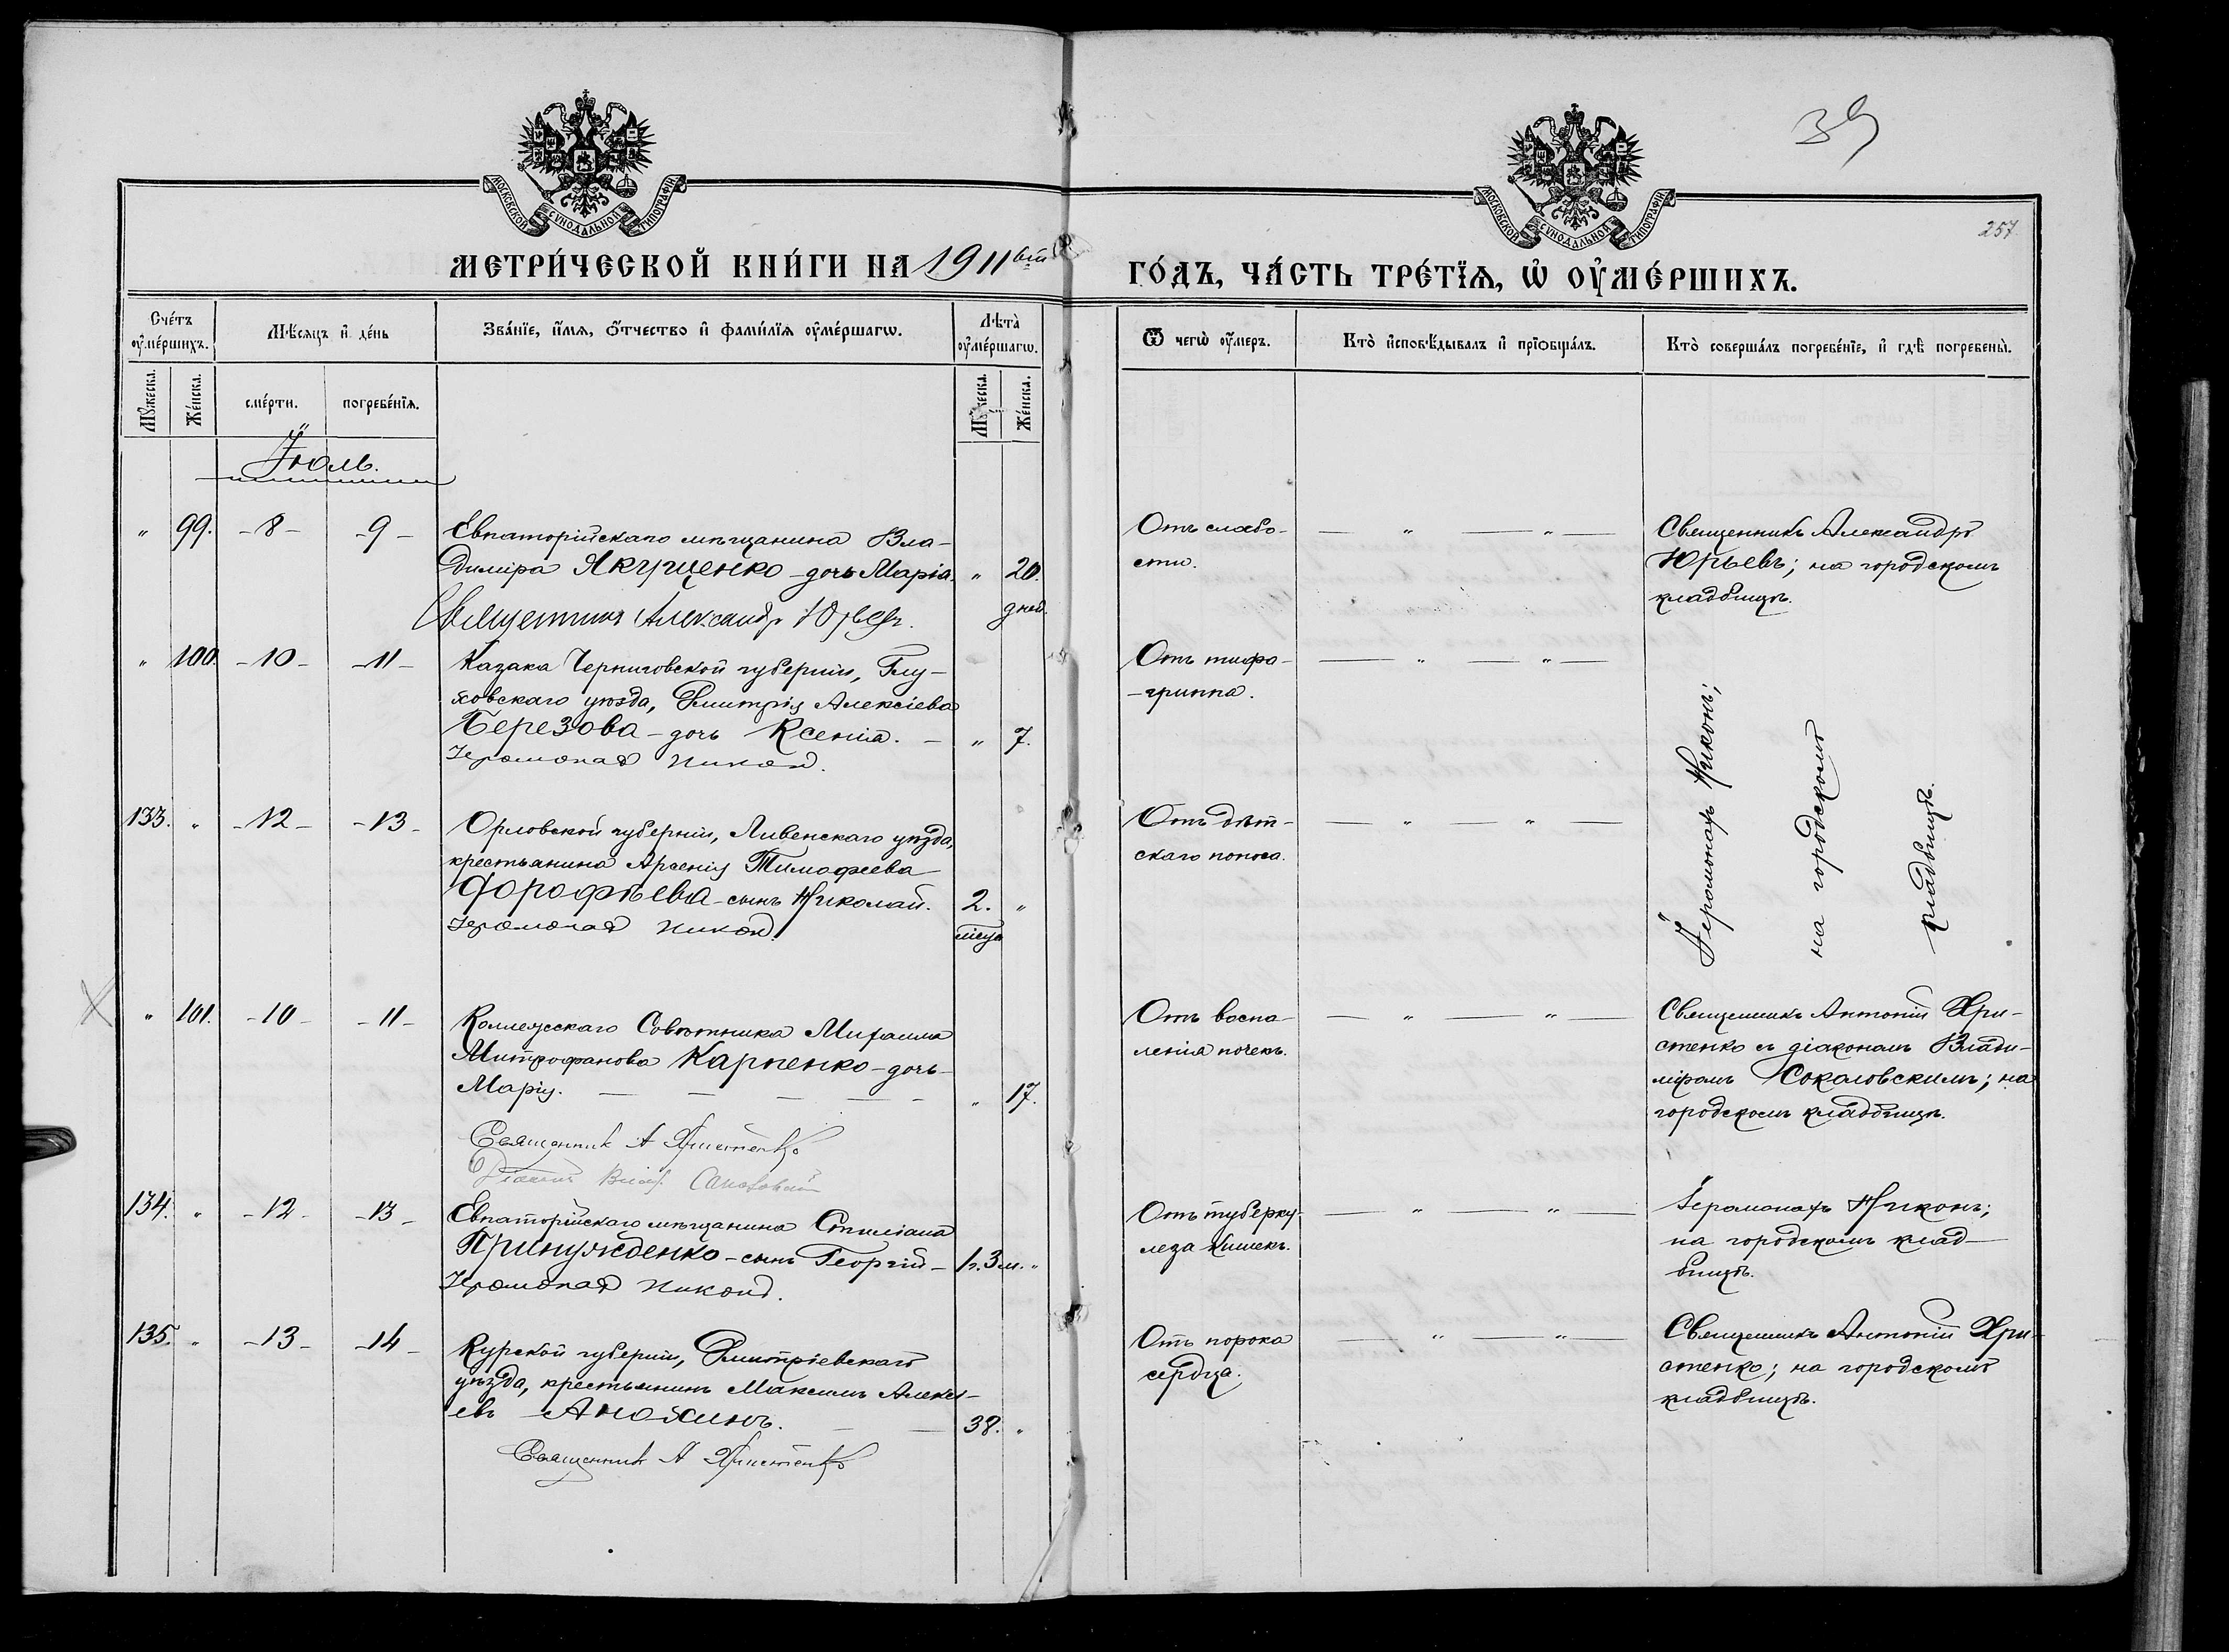 39
257
МОСКОВСКОЙ СѴНОДАЛЬНОЙ ТИПОГРАФІИ
МОСКОВСКОЙ СѴНОДАЛЬНОЙ ТИПОГРАФІИ
МЕТРИ́ЧЕСКОЙ КНИ́ГИ НА 1911ый
ГО́ДЪ, ЧА́СТЬ ТРЕ́ТЇѦ, Ѡ҆ ОУ҆МЕ́РШИХЪ.
Сче́тъ оу҆ме́ршихъ.
Мѣ́сѧцъ и҆ де́нь
Зва́нїе, и҆́мѧ, ѻ҆́тчество и҆ фами́лїѧ оу҆ме́ршагѡ.
Лѣта̀ оу҆ме́ршагѡ.
Ѿ чегѡ̀ оу҆́меръ.
Кто̀ и҆сповѣ́дывалъ и҆ прїѡбща́лъ.
Кто̀ соверша́лъ погребе́нїе, и҆ гдѣ̀ погребены̀.
Мꙋ́жеска. Же́нска. сме́рти. погребе́нїѧ. Мꙋ́жеска. Же́нска.
Іюль.
" 99. -8- -9- Евпаторійскаго мѣщанина Вла-
диміра Якущенко - дочь Марія. " 20.
дней.
Священникъ Александръ Юрьевъ.
Отъ слабо-
сти.
— " — " —
Священникъ Александръ
Юрьевъ; на городскомъ
кладбищѣ.
" 100. -10- -11- Казака Черниговской губерніи, Глу-
ховскаго уѣзда, Димитрія Алексіева
Березова - дочь Ксенія. — " 7.
Іеромонахъ Никонъ.
Отъ тифа-
-гриппа.
— " — " —
Іеромонахъ Никонъ;
на городскомъ
кладбищѣ.
133. " -12- -13- Орловской губерніи, Ливенскаго уѣзда,
крестьянина Арсенія Тимофеева
Дорофѣева - сынъ Николай. 2. "
мѣсяца
Іеромонахъ Никонъ.
Отъ дѣт-
скаго поноса.
— " — " —
" 101. -10- -11- Коллежскаго Совѣтника Михаила
Митрофанова Карпенко - дочь
Марія. — — — — " 17.
Священник А Христенко
Діаконъ Влад. Соколовскій
Отъ воспа-
ленія почекъ.
— " — " —
Священникъ Антоній Хри-
стенко съ діакономъ Влади-
міромъ Соколовскимъ; на
городскомъ кладбищѣ.
134. " -12- -13- Евпаторійскаго мѣщанина Стиліана
Принужденко - сынъ Георгій - 1г.3м. "
Іеромонахъ Никонъ.
Отъ туберку-
леза кишекъ.
— " — " —
Іеромонахъ Никонъ;
на городскомъ клад-
бищѣ.
135. " -13- -14- Курской губерніи, Димитріевскаго
уѣзда, крестьянинъ Максимъ Алексі-
евъ Анохинъ. — — 38. "
Священник А Христенко
Отъ порока
сердца.
— " — " —
Священникъ Антоній Хри-
стенко; на городскомъ
кладбищѣ.